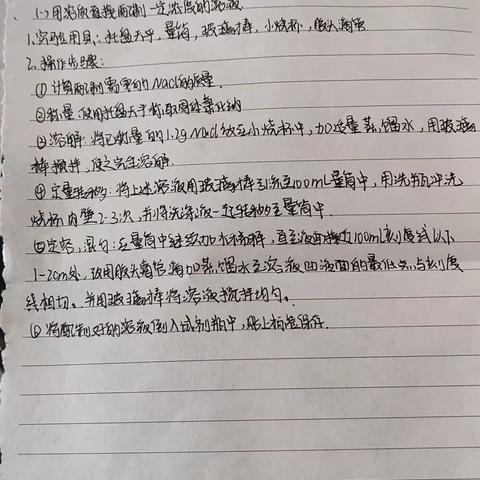 (一)用溶质直接配制一定浓度的溶液
1.实验用具:托盘天平,量筒,玻璃棒,小烧杯,胶头滴管
2.操作步骤:
①计算配制需要的NaCl的质量
②称量:使用托盘天平称取固体氯化钠
③溶解:将已称量的1.2g NaCl放至小烧杯中,加适量蒸馏水,用玻璃
棒搅拌,使之完全溶解.
④定量转移:将上述溶液用玻璃棒引流至100mL量筒中,用洗瓶冲洗
烧杯内壁2-3次,并将洗涤液一起转移至量筒中.
⑤定容,混匀:在量筒中继续加水稀释,直至液面接近100mL刻度线以下
1-2cm处,改用胶头滴管滴加蒸馏水至溶液凹液面的最低点与刻度
线相切。并用玻璃棒将溶液搅拌均匀。
⑥将配制好的溶液倒入试剂瓶中,贴上标签保存.